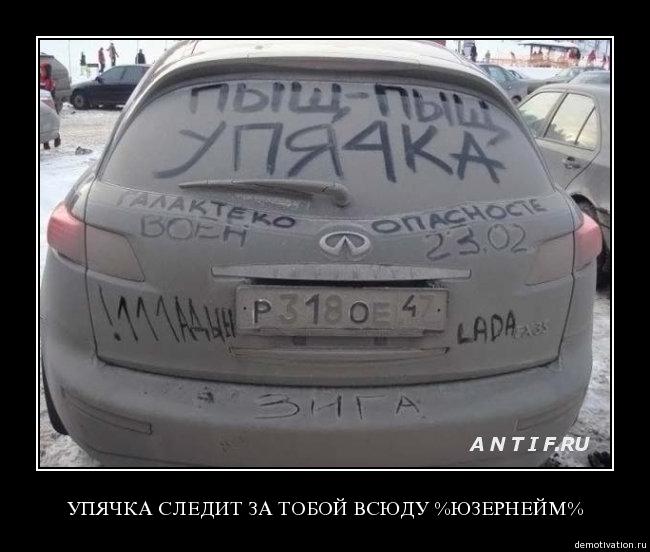 ПЫЩ-ПЫЩ
УПЯЧКА
ГАЛАКТЕКО ОПАСНОСТЕ
ВОЕН 23.02
Р318ОЕ 47
!111АДЫН
LADA FX35
ЗИГА
ANTIF.RU
УПЯЧКА СЛЕДИТ ЗА ТОБОЙ ВСЮДУ %ЮЗЕРНЕЙМ%
demotivation.ru